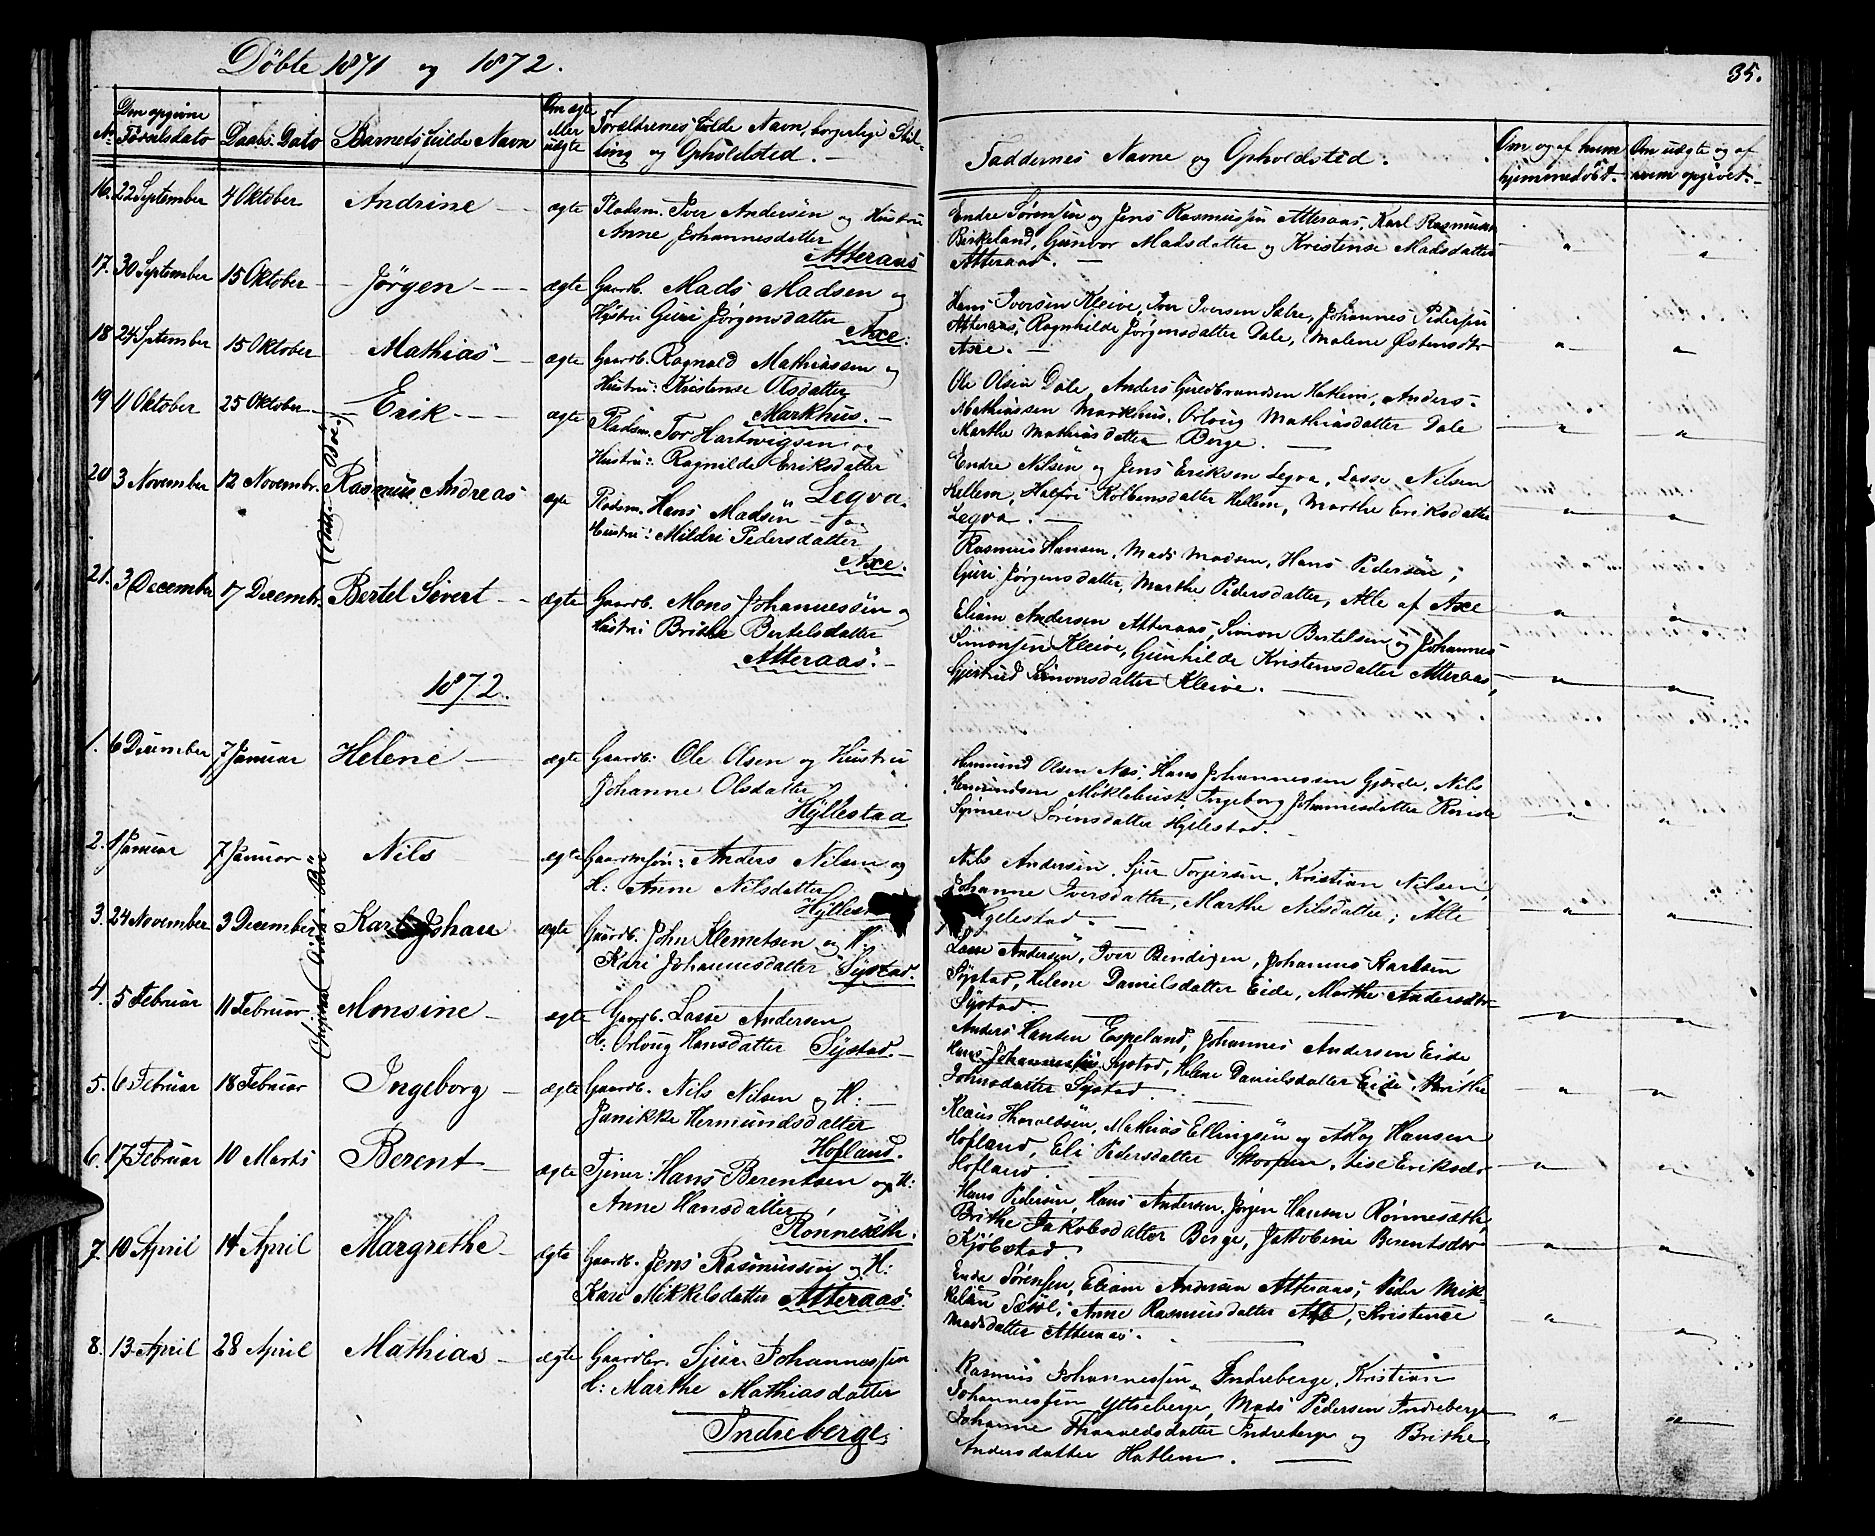 Döbte 1871 og 1872.
35.
No
Den opgivne Fødselsdato
Daabs. Dato
Barnets fulde Navn
Om ægte eller uægte
Forældrenes fulde Navn, borgerlige Stilling og Opholdsted. —
Faddernes Navne og Opholdsted.
Om og af hvem hjemmedöbt.
Om uægte og af hvem opgivet. —
16. 22 September 4 Oktober Andrine — ægte Pladsm. Iver Andersen og Hustru
Anne Johannesdatter
Atteraas
Endre Sörensen og Jens Rasmussen Atteraas, Karl Rasmussen
Birkeland, Gunvor Madsdatter og Kristense Madsdatter
Atteraas. —
17. 30 September 15 Oktober — Jörgen — ægte Gaardb. Mads Madsen og
Hustru Guri Jörgensdatter
Axe.
Hans Iversen Kleive, Iver Iversen Sætre, Johannes Pedersen
Atteraas, Ragnhilde Jörgensdatter Dale, Malene Østensdtr
Axe. —
18 24 September 15 Oktober Mathias — ægte Gaardb. Ragnald Mathiassen og
Hustru: Kristense Olsdatter
Markhus. —
Ole Olsen Dale, Anders Guldbrandsen Hatlem, Anders
Mathiassen Markhus, Orloug Mathiasdatter Dale
Marthe Mathiasdatter Berge. —
19 11 Oktober 25 Oktober — Erik — ægte Pladsm. Tor Hartvigsen og
Hustru: Ragnilde Eriksdatter
Legva.
Endre Nilsen og Jens Eriksen Legva, Lasse Nilsen
Hellem, Kolbensdatter Hellem, Marthe Eriksdatter
Legva. —
20 3 November 12 Novembr. Rasmus Andreas ægte Pladsm. Hans Madsen — og
Hustru: Mildri Pedersdatter
Axe.
Rasmus Hansen, Mads Madsen, Hans Pedersen;
Guri Jörgensdatter, Marthe Pedersdatter, Alle af Axe
21. 3 December 17 Decembr. Bertel Sivert — ægte Gaardb. Mons Johannessen og
Hustru Brithe Bertelsdatter
Atteraas. —
Eliam Andersen Atteraas, Simon Bertelsen og Johannes
Simonsen Kleive, Gunhilde Kristensdatter Atteraas,
Gjertrud Simonsdatter Kleive. —
1872.
1. 6 December 7 Januar Helene — ægte Gaardb: Ole Olsen og Hustru
Johanne Olsdatter
Hyllestad
Hermund Olsen Næs, Hans Johannessen Gjerde, Nils
Hermundsen Möklebust, Ingeborg Johannesdatter
Synneve Sörensdatter Hyllestad. —
2. 1 Januar 7 Januar Nils — ægte Gaardmsön: Anders Nilsen og
H: Anne Nilsdatter
Nils Andersen, Sjur Torjersen, Kristian Nilsen,
Johanne Iversdatter, Marthe Nilsdatter; Alle
Hyllestad. —
3. 24 November 3 December Karl Johan ægte Gaardb. John Klemetsen og H.
Kari Johannesdatter Systad.
Lasse Andersen, Iver Bendixen, Johannes Karlsen
Systad, Helene Danielsdatter Eide, Marthe Andersdtr
Systad. —
4. 5 Februar 11 Februar. Monsine — ægte Gaardb. Lasse Andersen
H: Orloug Hansdatter Systad. —
Anders Hansen Espeland, Johannes Andersen Eide,
Hans Johannessen Systad, Helene Danielsdatter Eide, Brithe
Johnsdatter Systad. —
5. 6 Februar 18 Februar Ingeborg — ægte Gaardb. Nils Nilsen og H: —
Janikke Hermundsdatter
Hofland.
Klaus Haraldsen, Mathias Ellingsen og Hansen
Hofland, Eli Pedersdatter Lise Eriksdtr
Hofland —
6. 17 Februar 10 Marts Berent — ægte Tjener: Hans Berentsen og H:
Anne Hansdatter
Rönnesæth.
Hans Pedersen, Hans Andersen, Jörgen Hansen Rönnesæth,
Brithe Jakobsdatter Berge, Jakobine Berentsdtr
7. 10 April 14 April Margrethe — ægte Gaardb. Jens Rasmussen og H:
Kari Mikkelsdatter Atteraas.
Endre Sörensen, Eliam Andersen Atteraas, Peder Mikkelsen Anne Rasmusdatter Kristense
Madsdatter Atteraas. —
8. 13 April 28 April Mathias — ægte Gaardbr. Sjur Johannessen
H: Marthe Mathiasdatter
Indreberge.
Rasmus Johannessen Indreberge, Kristian
Johannessen Ytteberge, Mads Pedersen Indreberge
Johanne Indreberge og Brithe
Andersdatter Hatlem. —